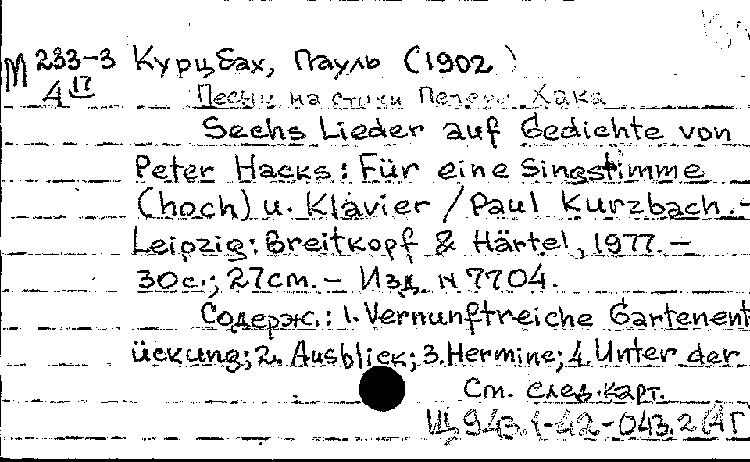 М 233-3 Курцбах, Пауль (1902 )
4 IV Песни на стихи Петера Хакса
Sechs Lieder auf Gedichte von
Peter Hacks: Für eine Singstimme
(hoch) u. Klavier / Paul Kurzbach.-
Leipzig: Breitkopf & Härtel, 1977.-
30с.; 27cm.- Изд. N 7704.
Содерж.: 1. Vernunftreiche Gartenent
ückung; 2. Ausblick; 3. Hermine; 4. Unter der
См. след. карт.
Щ 943.1-42-043.2